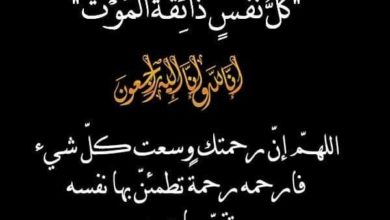 "كلُّ نفْسٍ ذَائِقَةُ الْمَوْتِ"
إنا لله وإنا إليه راجعون
اللهمّ إنّ رحمتك وسعت كلّ شيء
فارحمه رحمة تطمئنّ بها نفسه